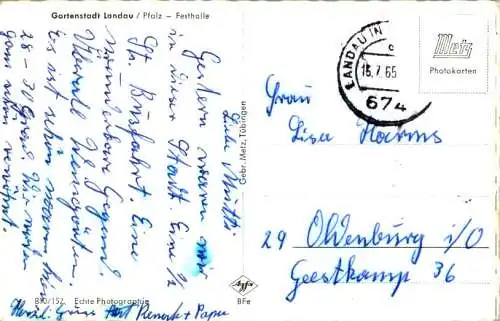 Gartenstadt Landau / Pfalz – Festhalle
Liebe Mutti.
Gestern waren wir
in dieser Stadt. Eine 1/2
St. Busfahrt. Eine
wunderbare Gegend
Überall Weingärten
Es ist schön warm
28 – 30 Grad. Wir werden
ganz schön verwöhnt.
Herzl. Grüße + Papa
810/152 Echte Photographie
Gebr. Metz, Tübingen
Agfa
BFe
LANDAU IN
c
16.7.65
674
Metz
Photokarten
Frau
Lisa Harms
29 Oldenburg i/O
Geestkamp 36